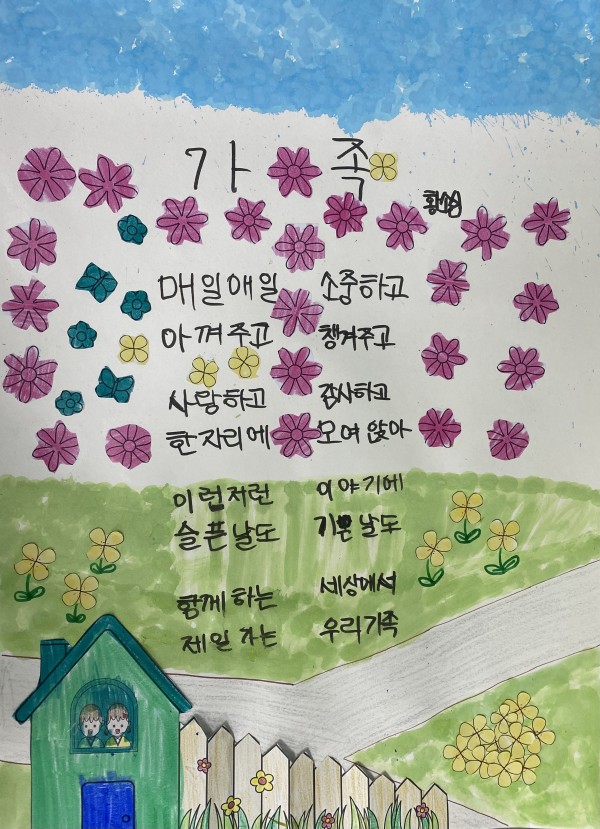 가족
매일매일 소중하고
아껴주고 챙겨주고
사랑하고 감사하고
한자리에 모여 앉아
이런저런 이야기에
슬픈날도 기쁜날도
함께하는 세상에서
제일 가는 우리가족